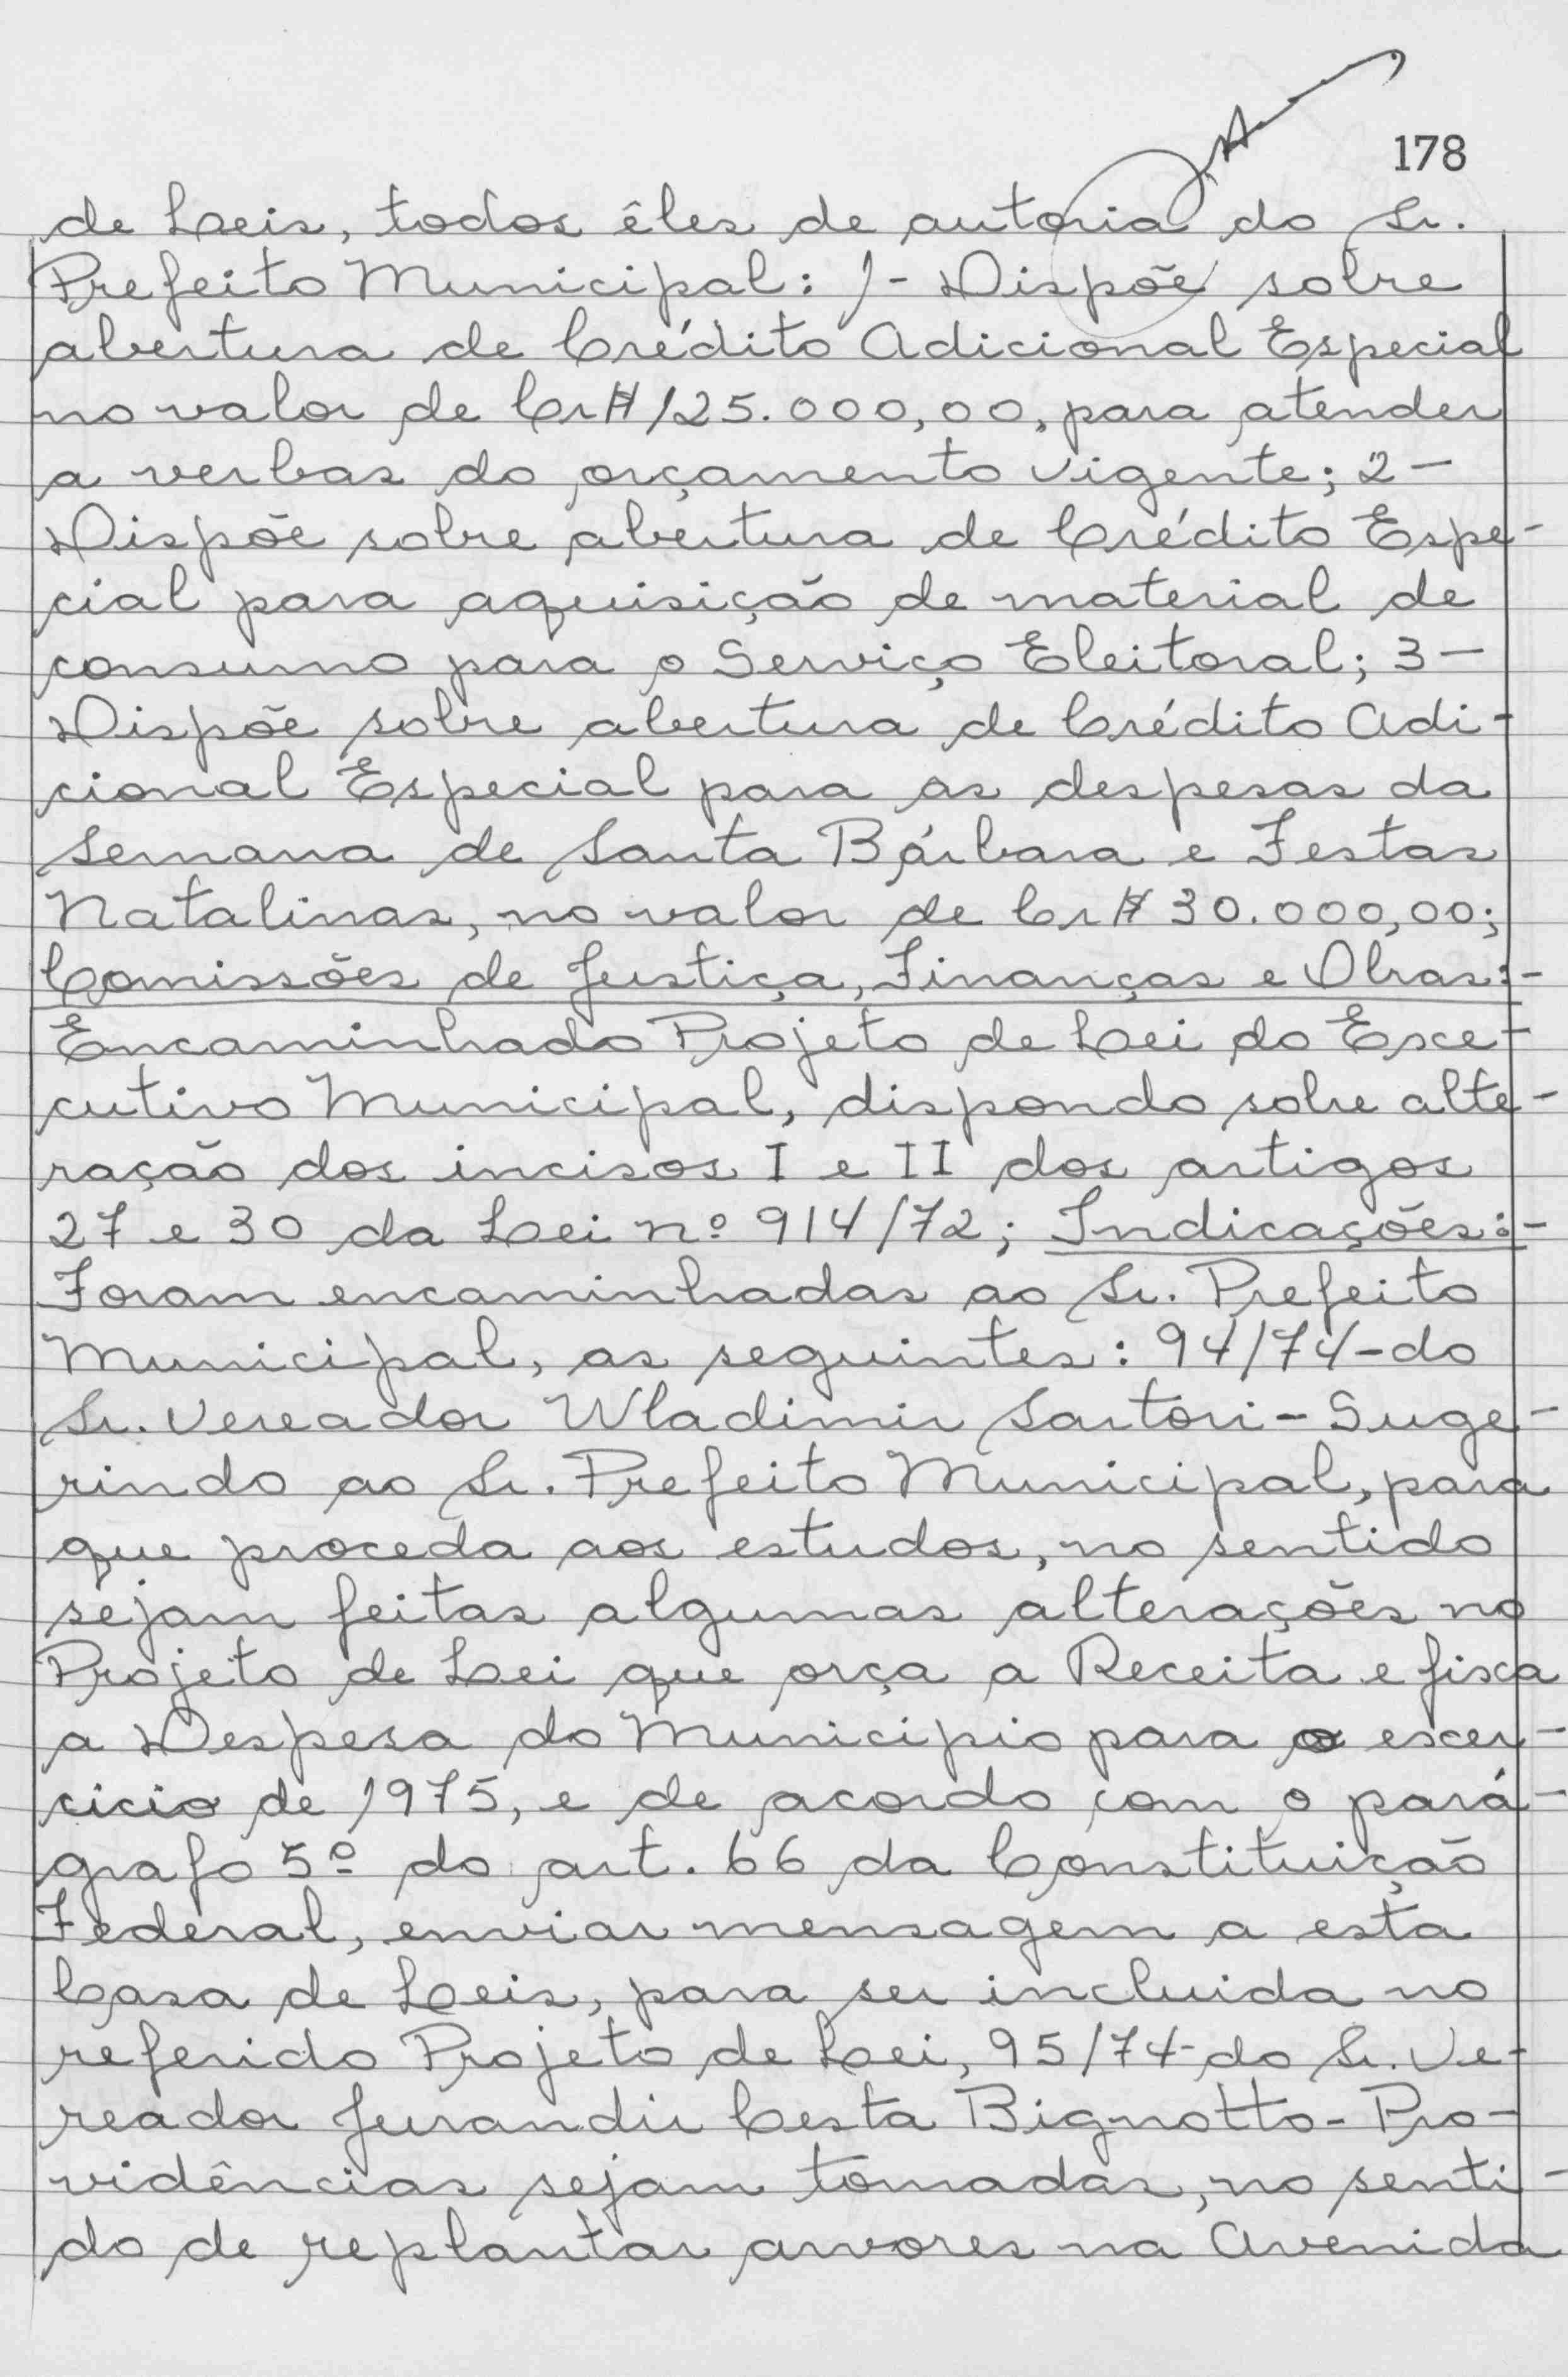 178
de Leis, todos êles de autoria do Sr.
Prefeito Municipal: 1- Dispõe sobre
abertura de Crédito Adicional Especial
no valor de Cr$ 125.000,00, para atender
a verbas do orçamento vigente; 2-
Dispõe sobre abertura de Crédito Espe-
cial para aquisição de material de
consumo para o Serviço Eleitoral; 3-
Dispõe sobre abertura de Crédito Adi-
cional Especial para as despesas da
Semana de Santa Bárbara e Festas
Natalinas, no valor de Cr$ 30.000,00;
Comissões de Justiça, Finanças e Obras:-
Encaminhado Projeto de Lei do Exe-
cutivo Municipal, dispondo sobre alte-
ração dos incisos I e II dos artigos
27 e 30 da Lei nº 914/72; Indicações:-
Foram encaminhadas ao Sr. Prefeito
Municipal, as seguintes: 94/74-do
Sr. Vereador Wladimir Sartori-Suge-
rindo ao Sr. Prefeito Municipal, para
que proceda aos estudos, no sentido
sejam feitas algumas alterações no
Projeto de Lei que orça a Receita e fixa
a Despesa do Municipio para o exer-
cicio de 1975, e de acordo com o pará-
grafo 5º do art. 66 da Constituição
Federal, enviar mensagem a esta
Casa de Leis, para ser incluida no
referido Projeto de Lei, 95/74-do Sr. Ve-
reador Jurandir Cesta Bignotto-Pro-
vidências sejam tomadas, no senti-
do de replantar arvores na Avenida